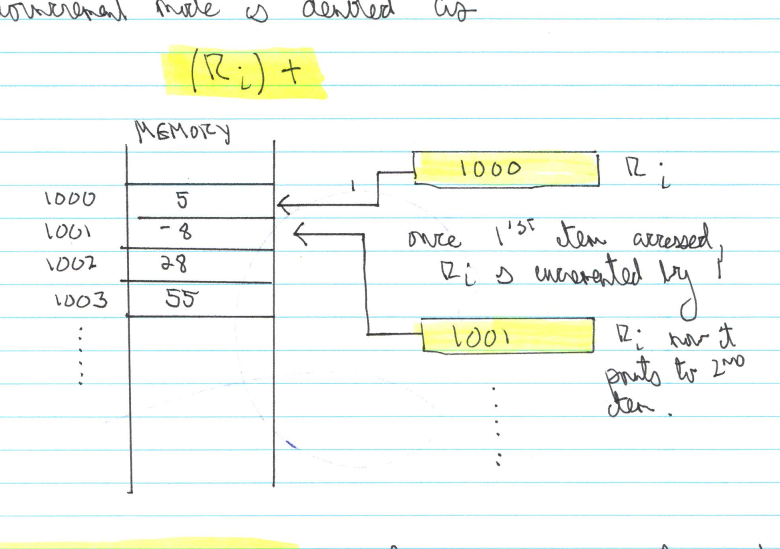 mode is denoted as
(Ri) +
MEMORY
1000 Ri
1
1000 5
1001 -8
1002 28
1003 55
once 1'st item accessed,
Ri is incremented by 1
1001 Ri now it
points to 2nd
item.